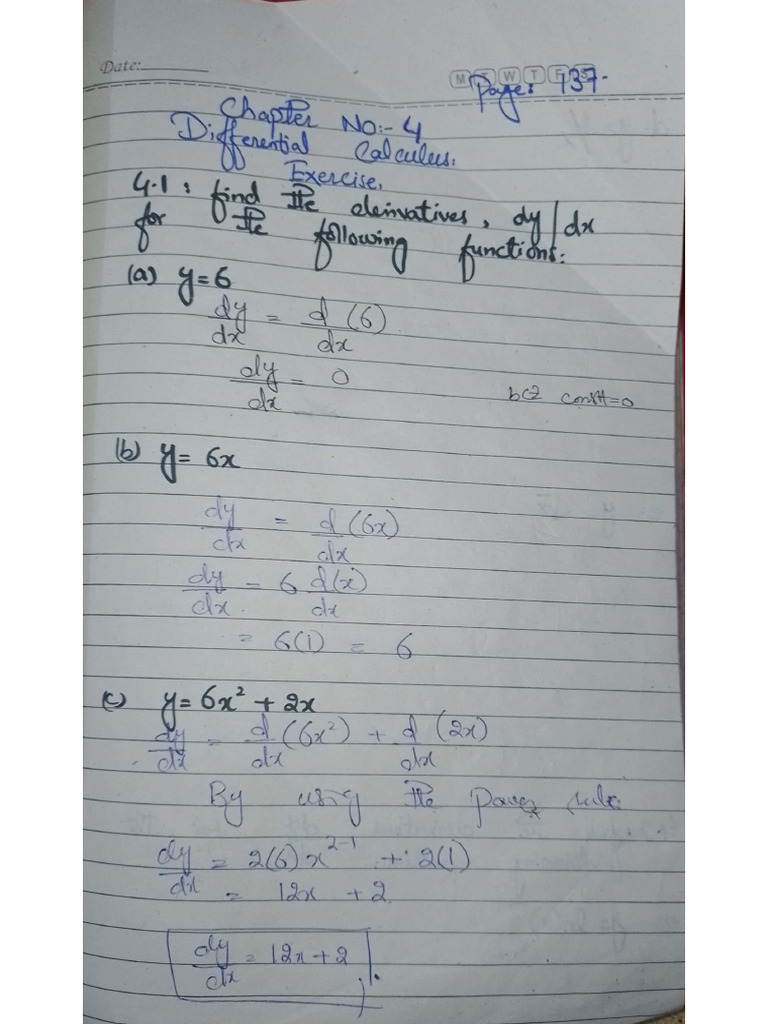 Date:
M T W T F S
Page: 137.
Chapter No:- 4
Differential Calculus.
Exercise.
4.1: find the derivatives, dy/dx
for the following functions:
(a) y=6
dy/dx = d/dx (6)
dy/dx = 0 bcz const=0
(b) y= 6x
dy/dx = d/dx (6x)
dy/dx = 6 d(x)/dx
= 6(1) = 6
(c) y= 6x² + 2x
dy/dx = d/dx (6x²) + d/dx (2x)
By using the power rule
dy/dx = 2(6)x²⁻¹ + 2(1)
= 12x + 2
dy/dx = 12x+2